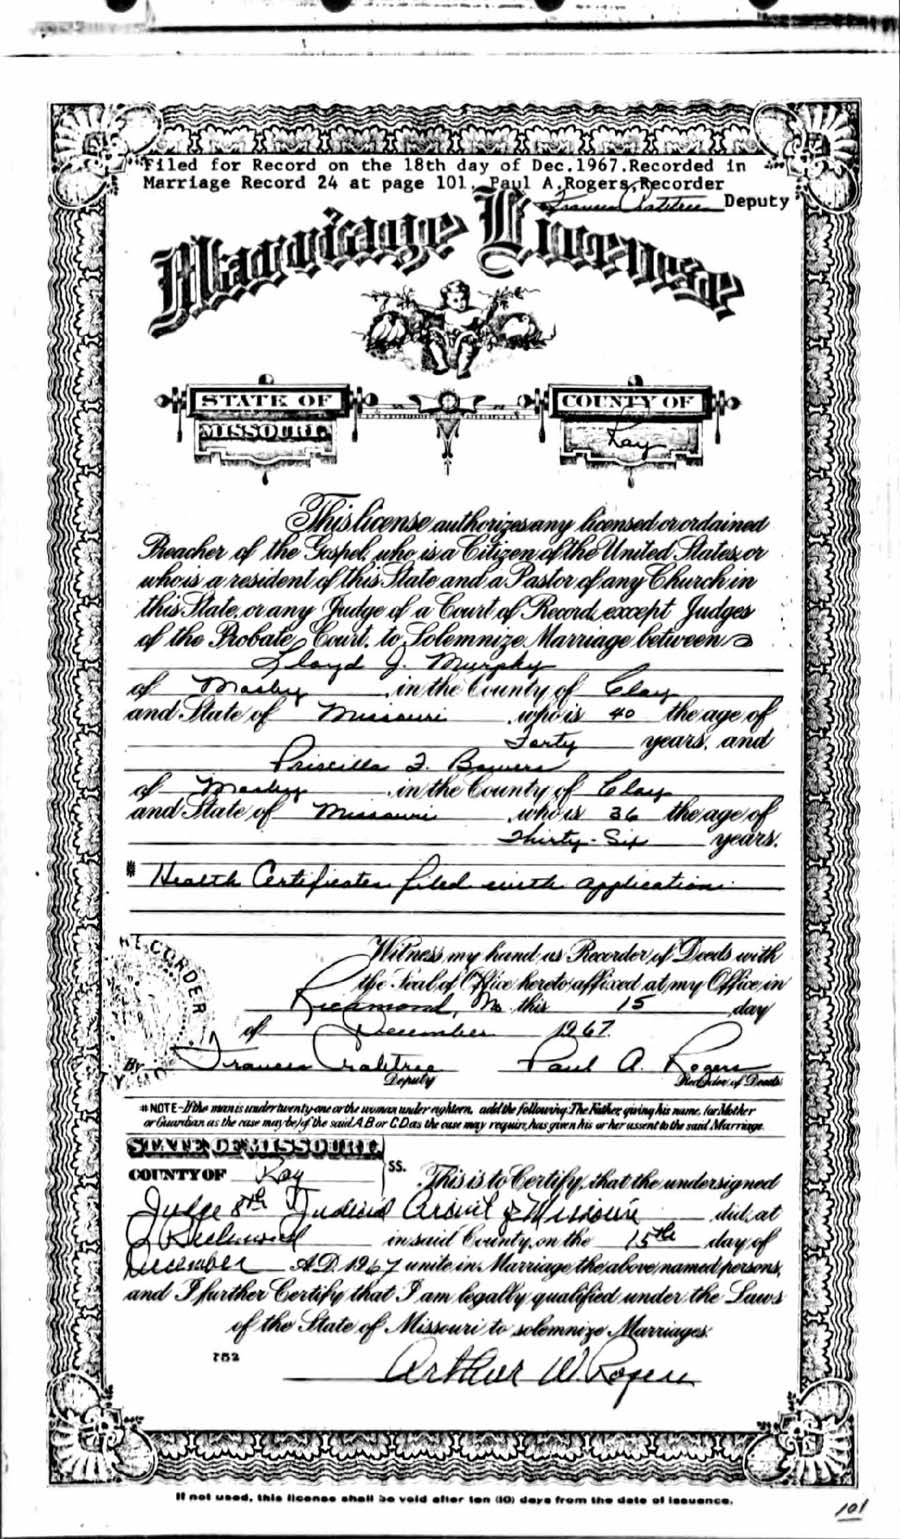 Filed for Record on the 18th day of Dec.1967.Recorded in
Marriage Record 24 at page 101. Paul A.Rogers,Recorder
Frances Crabtree Deputy
Marriage License
STATE OF
MISSOURI.
COUNTY OF
Ray
This license authorizes any licensed or ordained
Preacher of the Gospel, who is a Citizen of the United States, or
who is a resident of this State and a Pastor of any Church in
this State, or any Judge of a Court of Record, except Judges
of the Probate Court, to Solemnize Marriage between
Lloyd J. Murphy
of Mosby in the County of Clay
and State of Missouri who is 40 the age of
Forty years, and
Priscilla F. Bowers
of Mosby in the County of Clay
and State of Missouri who is 36 the age of
Thirty-Six years.
* Health Certificates filed with application.
RECORDER
Witness my hand as Recorder of Deeds with
the Seal of Office hereto affixed at my Office in
Richmond, Mo this 15 day
of December 1967.
By Frances Crabtree Paul A. Rogers
Deputy Recorder of Deeds
* NOTE-If the man is under twenty-one or the woman under eighteen, add the following: The Father, giving his name, (or Mother
or Guardian as the case may be) of the said A.B or C.D. as the case may require, has given his or her assent to the said Marriage.
STATE OF MISSOURI,
COUNTY OF Ray SS.
This is to Certify, that the undersigned
Judge 8th Judicial Circuit of Missouri did, at
Richmond in said County, on the 15th day of
December A.D. 1967 unite in Marriage the above named persons,
and I further Certify that I am legally qualified under the Laws
of the State of Missouri to solemnize Marriages.
752
Arthur W. Rogers
If not used, this license shall be void after ten (10) days from the date of issuance.
101